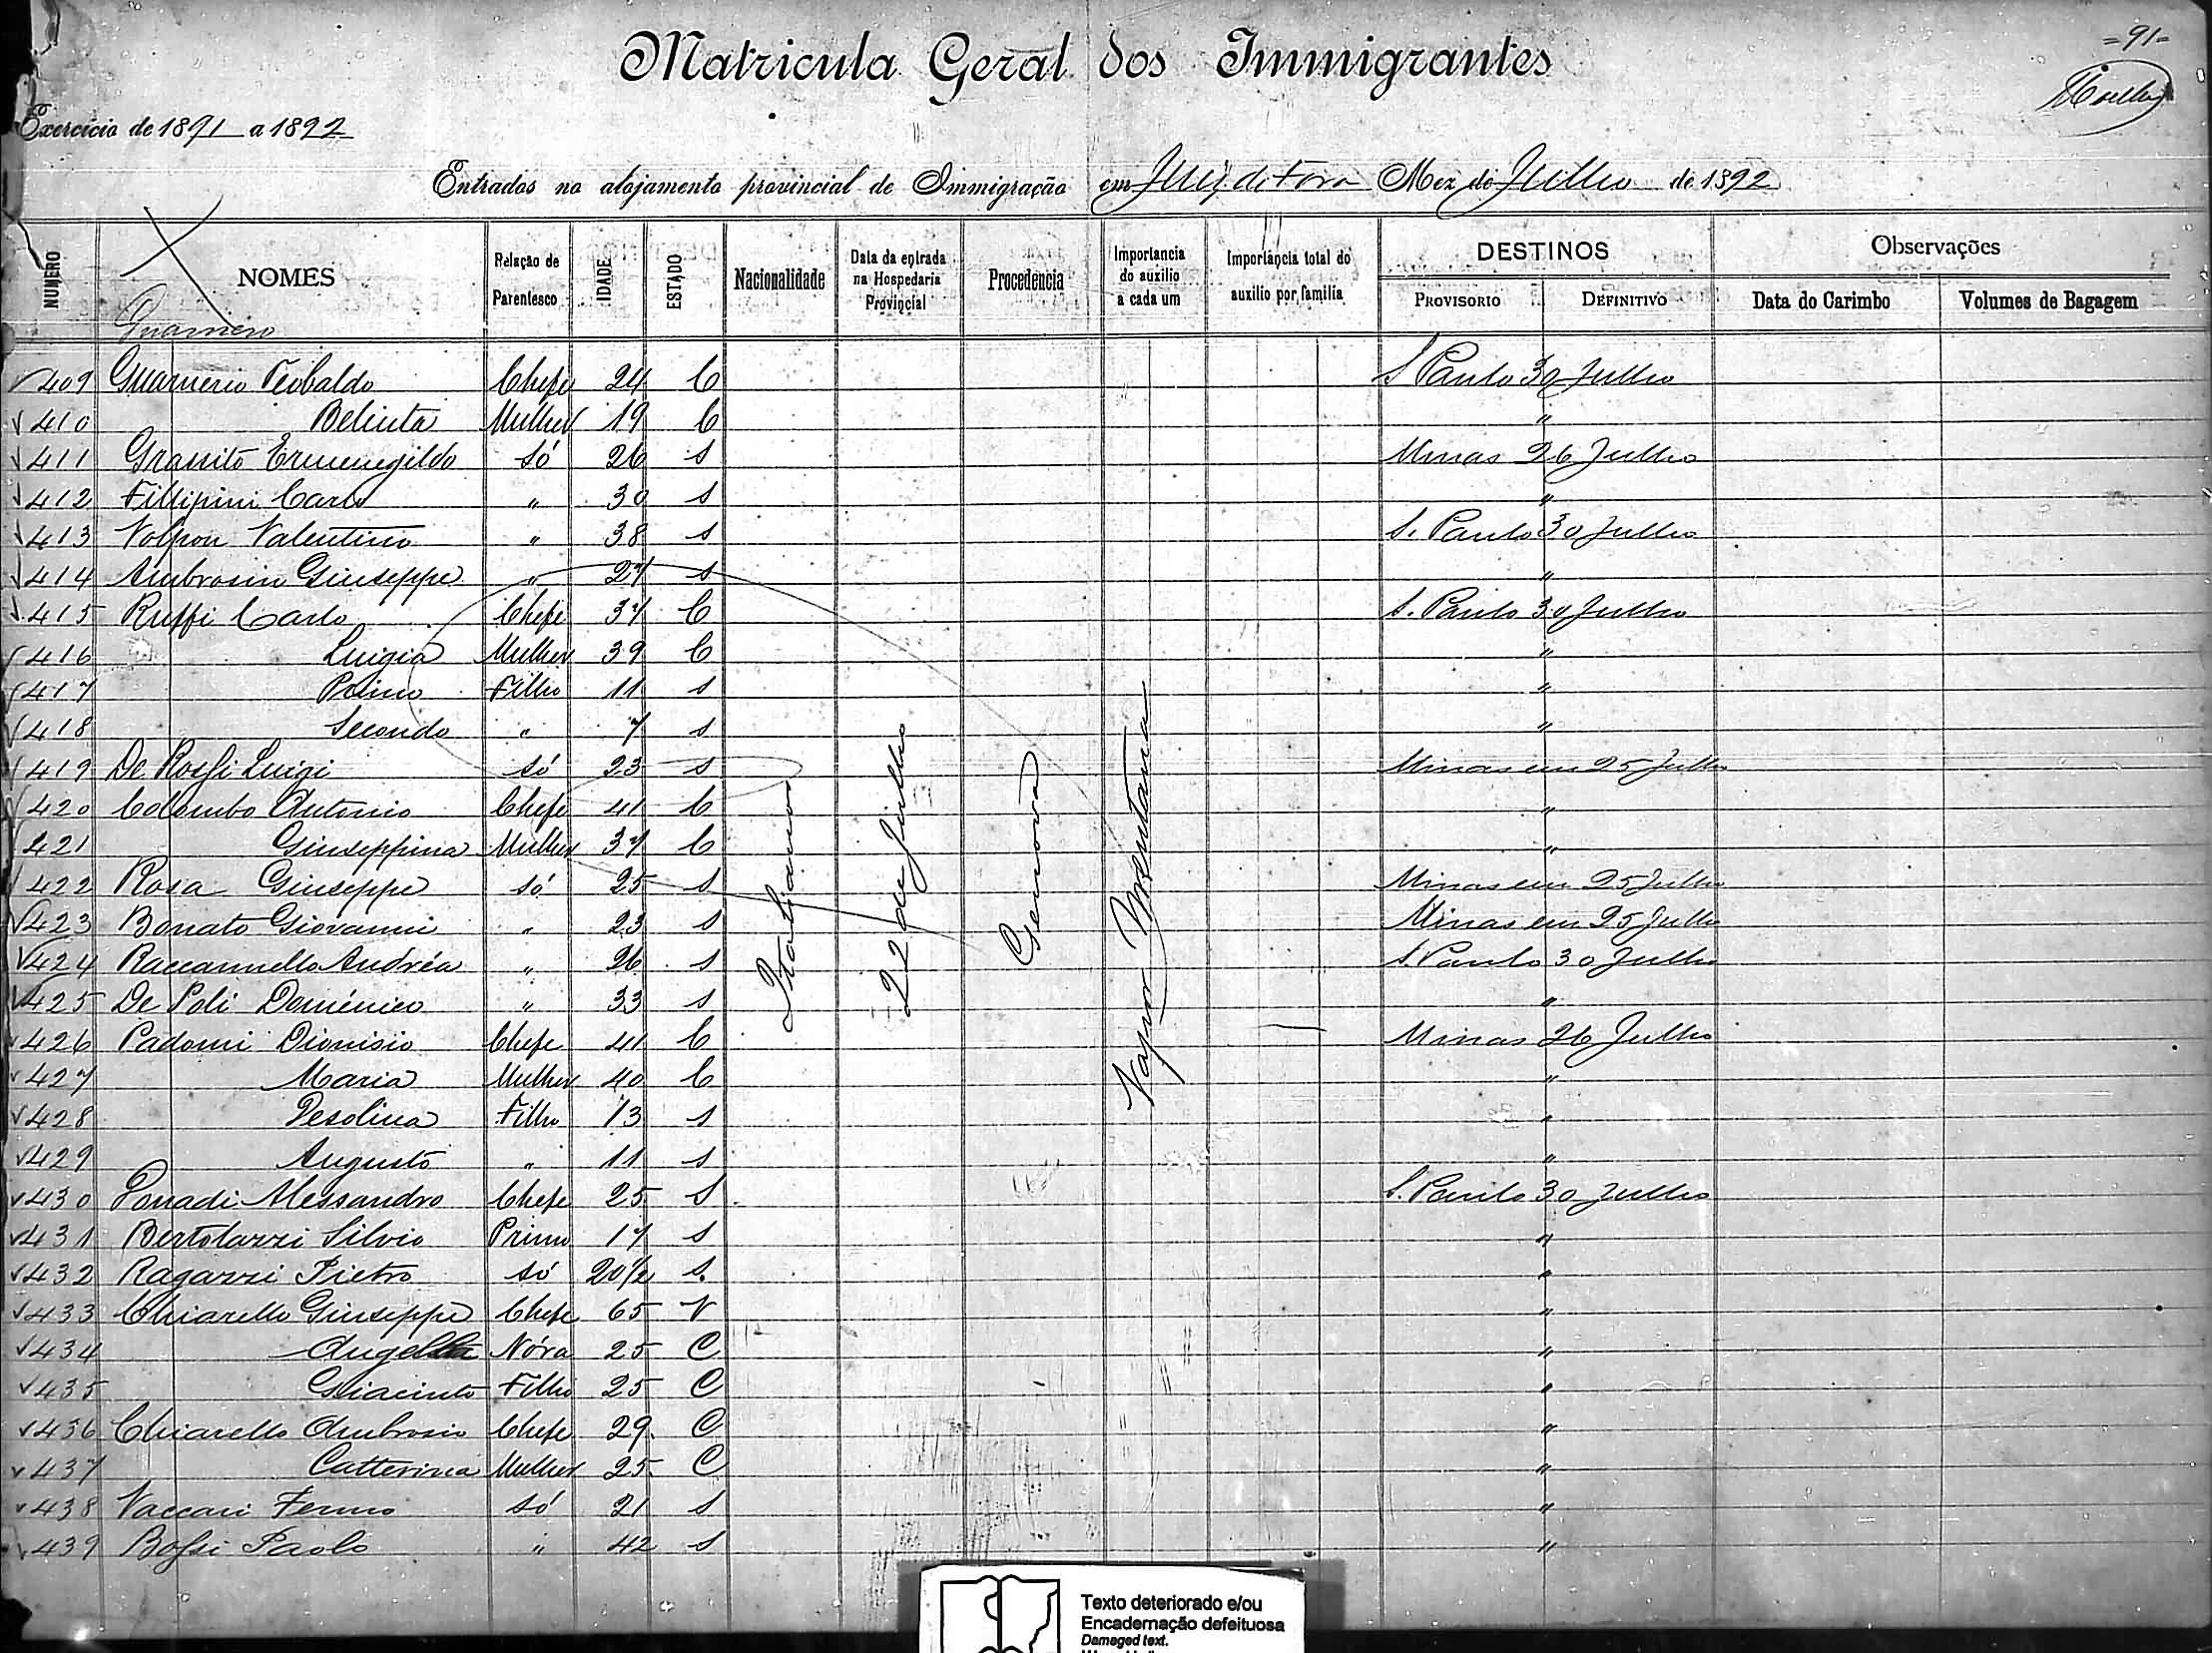 =91=
Matricula Geral dos Immigrantes
Exercicio de 1891 a 1892
Entrados no alojamento provincial de Immigração em Juiz de Fora Mez de Julho de 1892
NUMERO NOMES Relação de Parentesco IDADE ESTADO Nacionalidade Data da entrada na Hospedaria Provincial Procedencia Importancia do auxilio a cada um Importancia total do auxilio por familia DESTINOS PROVISORIO DEFINITIVO Observações Data do Carimbo Volumes de Bagagem
Guarniero
409 Guarnerio Teobaldo Chefe 24 C S Paulo 30 Julho
410 Belinta Mulher 19 C "
411 Granito Ermenegildo só 26 s Minas 26 Julho
412 Fillipini Carlo " 30 s "
413 Volpon Valentino " 38 s S. Paulo 30 Julho
414 Ambrosin Giuseppe " 27 s "
415 Ruffi Carlo Chefe 37 C S. Paulo 30 Julho
416 Luigia Mulher 39 C "
417 Primo Filho 11 s "
418 Secondo " 7 s "
419 De Rossi Luigi só 23 s Minas em 25 Julho
420 Colombo Antonio Chefe 41 C "
421 Giuseppina Mulher 37 C "
422 Rosa Giuseppe só 25 s Minas em 25 Julho
423 Bonato Giovanni " 23 s Minas em 25 Julho
424 Raccannello Andréa " 26 s S. Paulo 30 Julho
425 De Poli Doménico " 33 s "
426 Padovni Dionisio Chefe 41 C Minas 26 Julho
427 Maria Mulher 40 C "
428 Pesolina Filho 13 s "
429 Augusto " 11 s "
430 Alessandro Chefe 25 S S. Paulo 30 Julho
431 Bertolazzi Silvio Primo 17 s "
432 Ragazzi Pietro só 20 1/2 s. "
433 Chiarello Giuseppe Chefe 65 V "
434 Angella Nóra 25 C "
435 Giacinto Filho 25 C "
436 Chiarello Ambrosio Chefe 29. C "
437 Catterina Mulher 25. C "
438 Vaccari Fermo Só 21 s "
439 Bossi Paolo " 42 s "
Italianos
22 de Julho
Genova
Vapor Mentana
Texto deteriorado e/ou
Encadernação defeituosa
Damaged text.